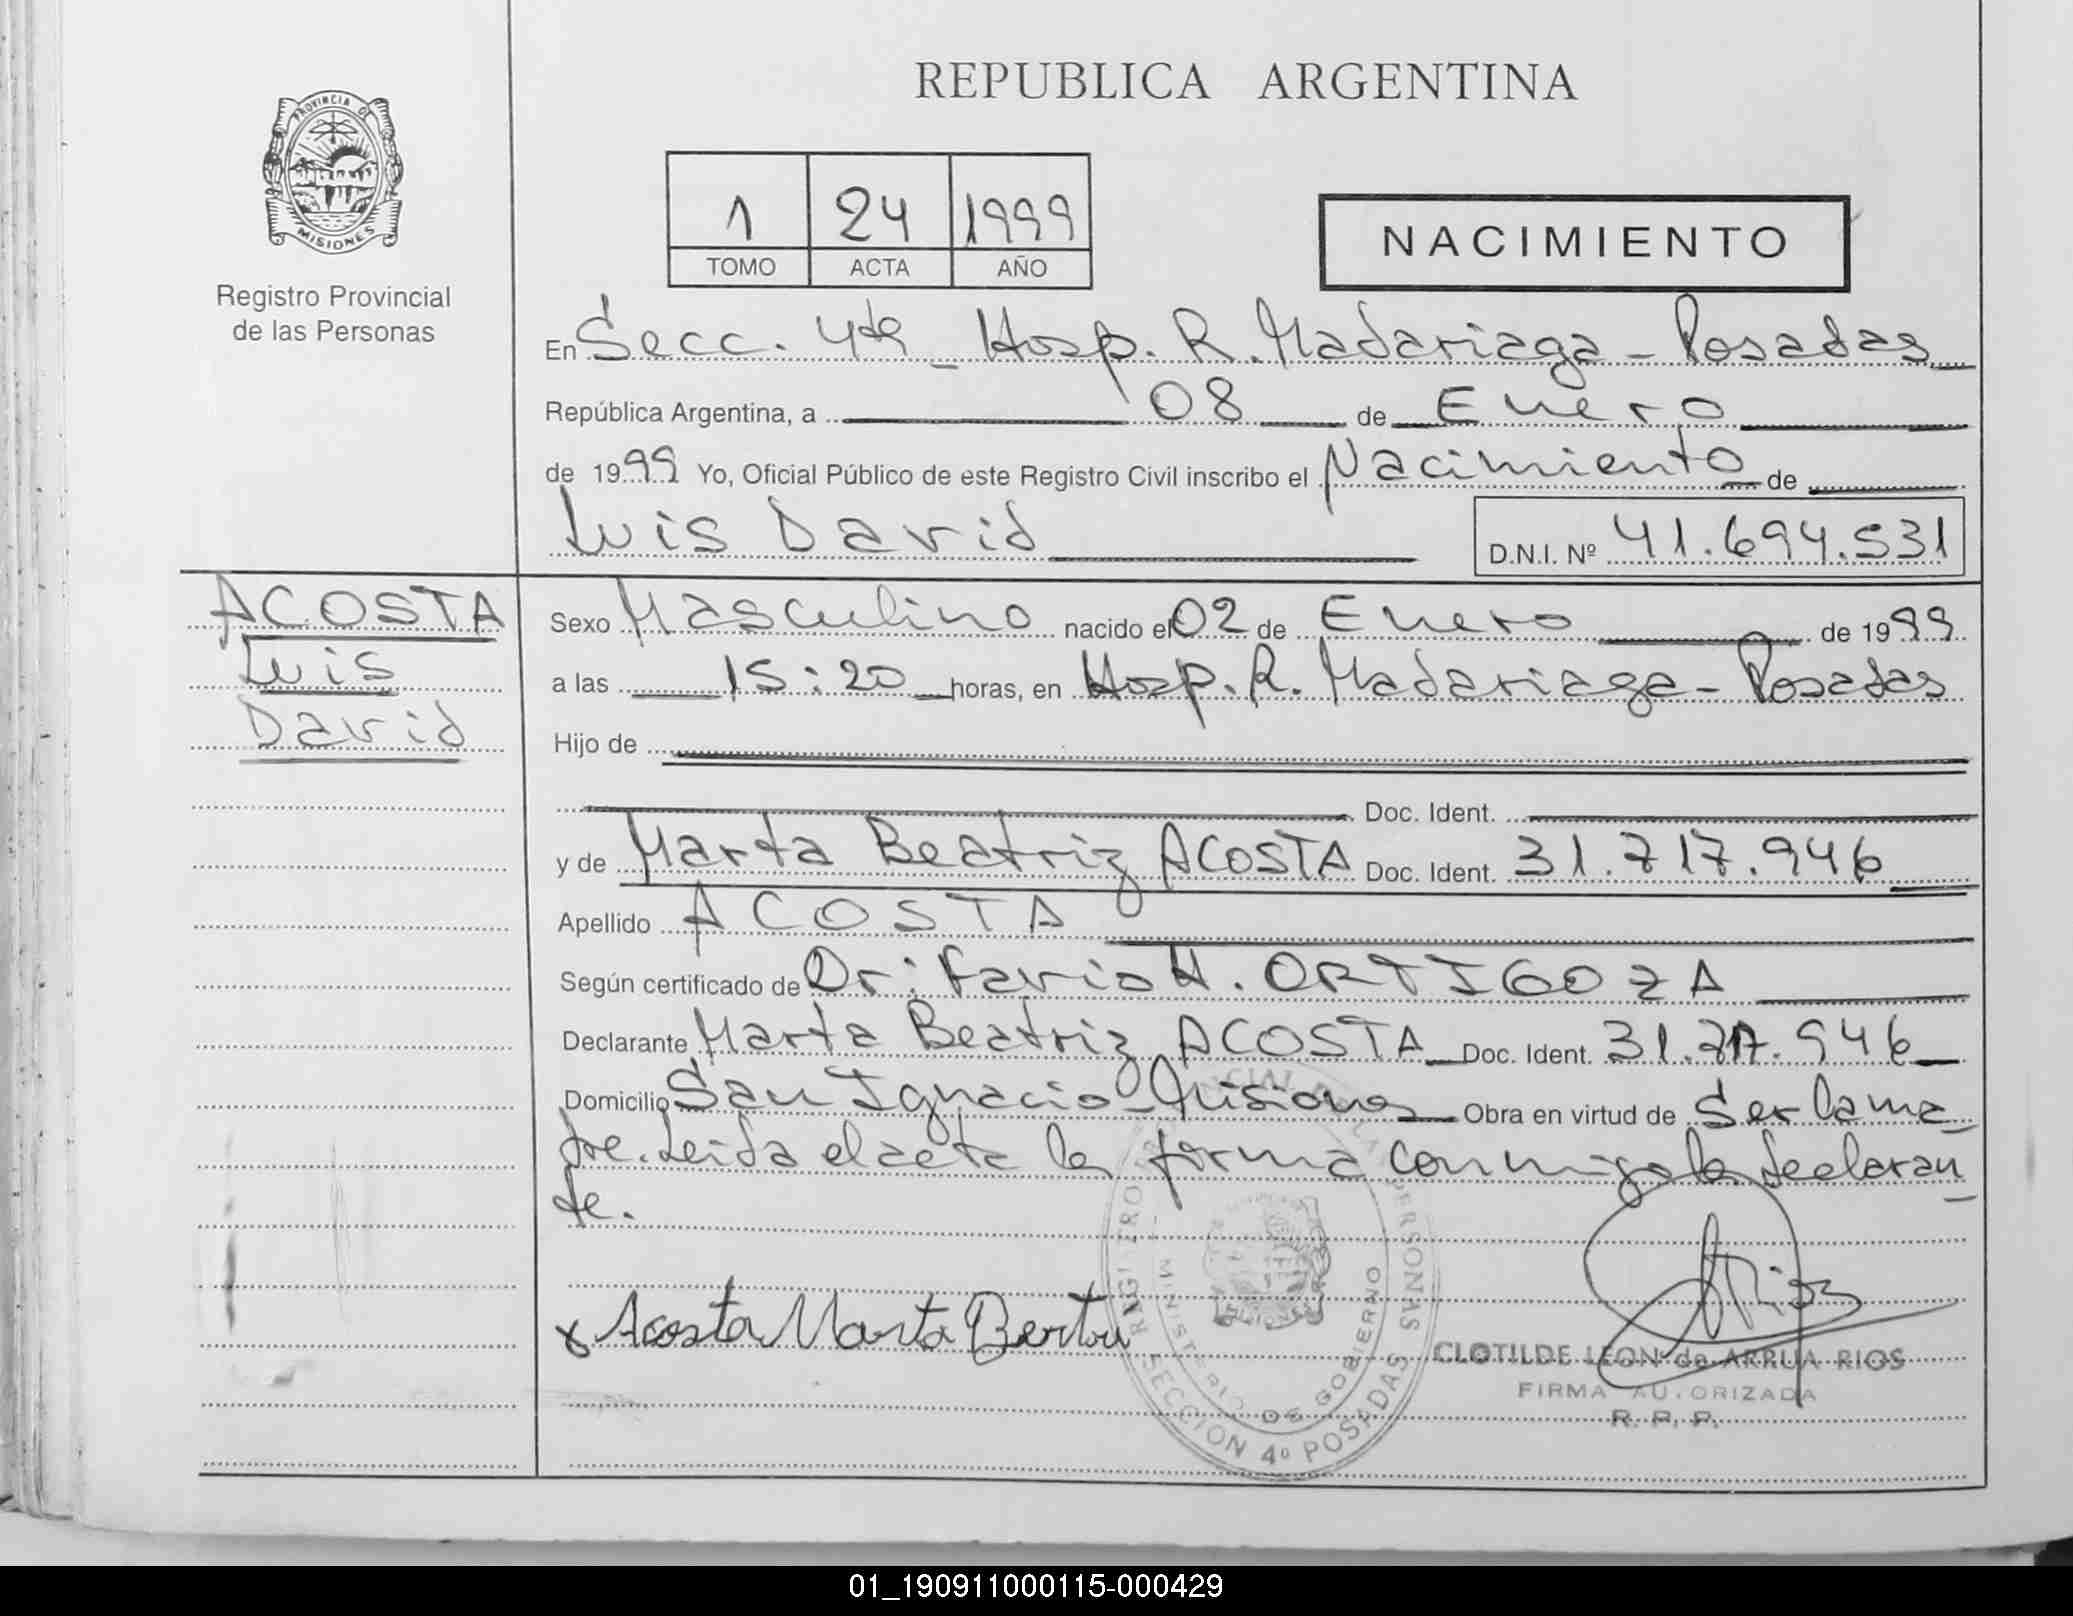 REPUBLICA ARGENTINA
PROVINCIA DE
MISIONES
Registro Provincial
de las Personas
1 24 1999
TOMO ACTA AÑO
NACIMIENTO
En Secc. 4ta - Hosp. R. Madariaga - Posadas
República Argentina, a 08 de Enero
de 1999 Yo, Oficial Público de este Registro Civil inscribo el Nacimiento de
Luis David
D.N.I. Nº 41.694.531
ACOSTA
Luis
David
Sexo Masculino nacido el 02 de Enero de 1999
a las 15:20 horas, en Hosp. R. Madariaga - Posadas
Hijo de
Doc. Ident.
y de Marta Beatriz ACOSTA Doc. Ident. 31.717.946
Apellido ACOSTA
Según certificado de Dr: Favio H. ORTIGOZA
Declarante Marta Beatriz ACOSTA Doc. Ident. 31.717.946
Domicilio San Ignacio - Misiones Obra en virtud de Ser la ma-
dre. Leida el acta la firma conmigo la declaran-
te.
x Acosta Marta
ARios
CLOTILDE LEON de ARRUA RIOS
FIRMA AUTORIZADA
R. P. P.
REGISTRO PROVINCIAL DE LAS PERSONAS
MINISTERIO DE GOBIERNO
SECCION 4º POSADAS
01_190911000115-000429